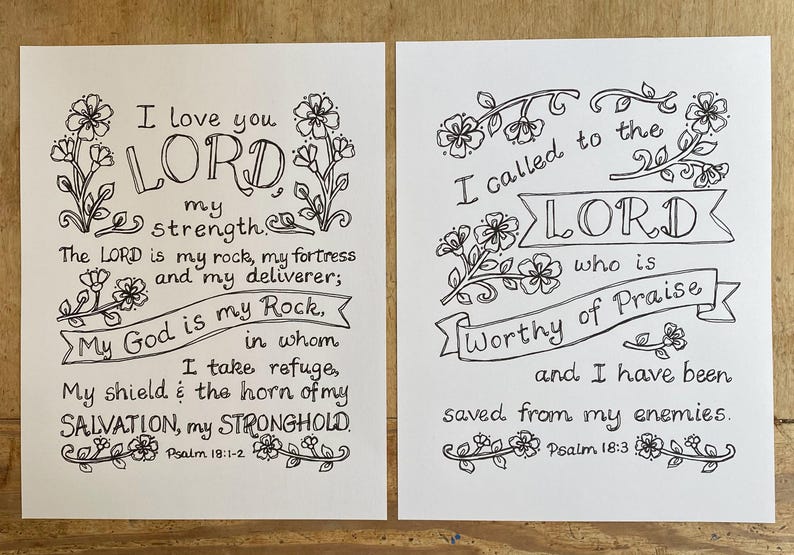 I love you
LORD,
my
strength.
The LORD is my rock, my fortress
and my deliverer;
My God is my Rock,
in whom
I take refuge,
My shield & the horn of my
SALVATION, my STRONGHOLD.
Psalm 18:1-2
I called to the
LORD
who is
Worthy of Praise
and I have been
saved from my enemies.
Psalm 18:3